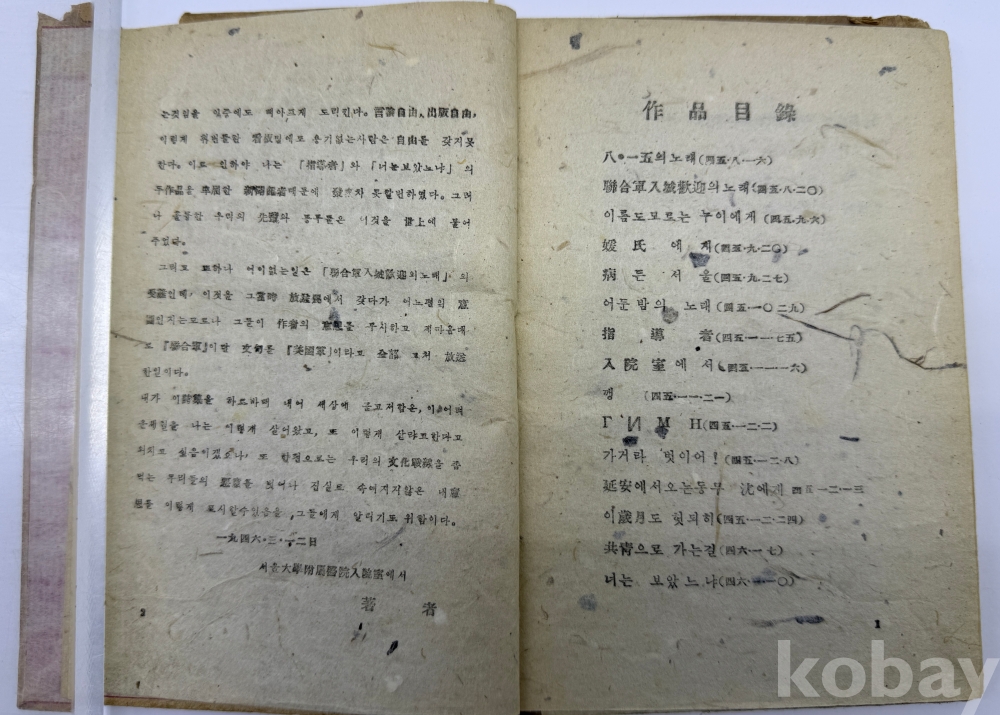 는것임을 일증에도 해아르게 도력킨다. 言論自由, 出版自由,
이렇게 위험들할 용기없는사람은 自由를 갖지못
한다. 이로 인하야 나는 「指導者」와 「너는보았느냐」의
두作品을 新聞記者때문에 發表차 못할번하였다. 그러
나 우리의 先輩와 동무들은 이것을 世上에 물어
주었다.
그리고 또하나 어이없는일은 「聯合軍入城歡迎의노래」의
이것을 그當時 放送局에서 갖다가 어느편의
인지는모르나 그들이 作者의 를 무시하고 제마음대
로 『聯合軍』이란 文句를 『美國軍』이라고 全部 고쳐 放送
한일이다.
내가 이詩集을 하로바삐 내어 세상에 묻고저함은, 이
나는 이렇게 살어왔고, 또 이렇게 살랴고한다고
외치고 싶음이겠으나, 또 한편으로는 우리의 文化戰線을 좀
먹는 무리들의 집실로 속여지지않은 내
이렇게 표시할수있음을, 그들에게 알리기도 위함이다.
一九四六·三·十二日
서울大學附屬醫院入院室에서
著 者
2
作品目錄
八·一五의노래(四五·八·一六)
聯合軍入城歡迎의노래(四五·八·二〇)
이름도모르는 누이에게(四五·九·六)
媛氏에게(四五·九·二〇)
病든서울(四五·九·二七)
어둔밤의 노래(四五·一〇二九)
指導者(四五·一一·七五)
入院室에서(四五·一一·一六)
깽(四五·一一·二一)
Г И М Н(四五·一二·二)
가거라 벗이어!(四五·一二·八)
延安에서오는동무 沈에게(四五·一二·一三
이歲月도 헛되히(四五·一二·二四)
共靑으로 가는길(四六·一七)
너는 보았느냐(四六·一·一〇)
1
kobay